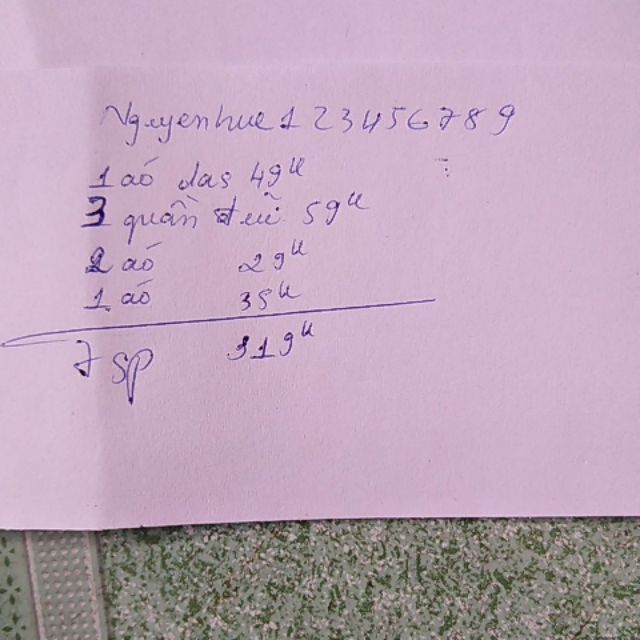 Nguyenhue123456789
1 áo das 49k
3 quần đuĩ 59k
2 áo 29k
1 áo 35k
7 sp 319k